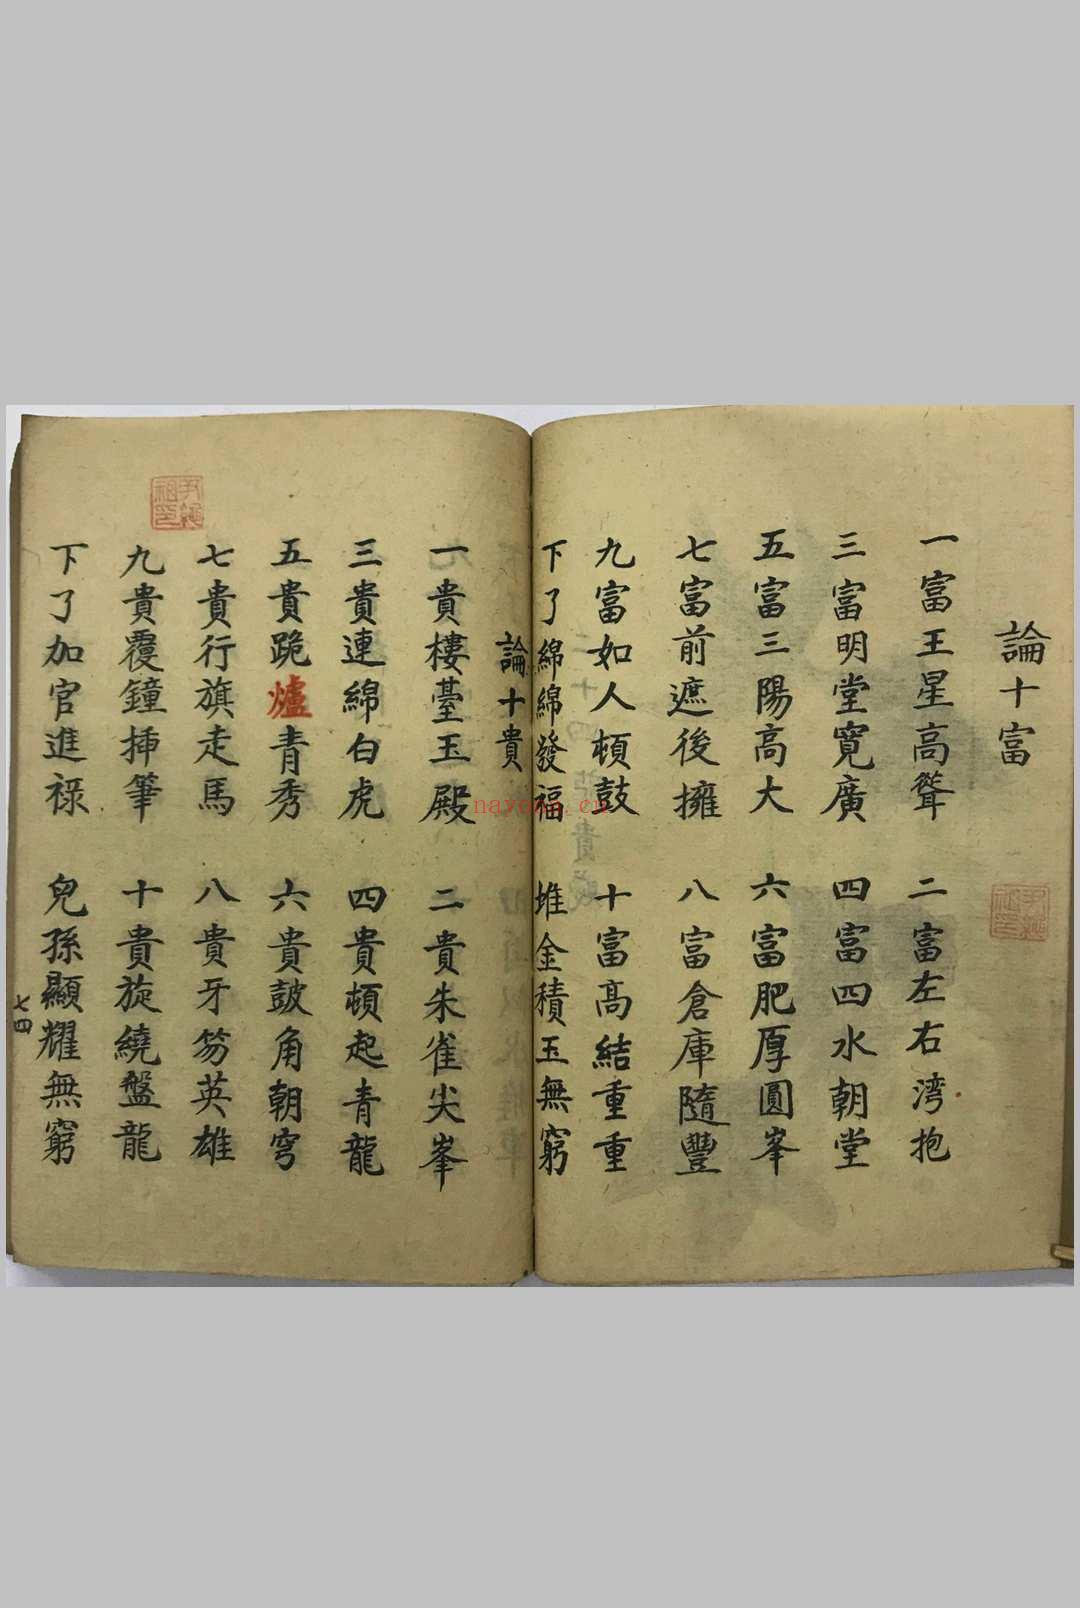 論十富
一富王星高聳　二富左右湾抱
三富明堂寛廣　四富四水朝堂
五富三陽高大　六富肥厚圓峯
七富前遮後擁　八富倉庫隨豐
九富如人頓鼓　十富高結重重
下了綿綿發福　堆金積玉無窮
論十貴
一貴樓臺玉殿　二貴朱雀尖峯
三貴連綿白虎　四貴頓起青龍
五貴跪爐青秀　六貴鼓角朝穹
七貴行旗走馬　八貴牙笏英雄
九貴覆鐘挿筆　十貴旋繞盤龍
下了加官進禄　兒孫顯耀無窮
七四